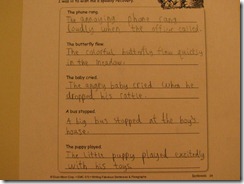 The phone rang.
The annoying phone rang
loudly when the office
The butterfly flew.
The colorful butterfly flew quickly
in the meadow.
The baby cried.
The angry baby cried when he
dropped his
A bus stopped.
A big bus stopped at the boy's
house.
The puppy played.
The little puppy played excitedly
with his toys.